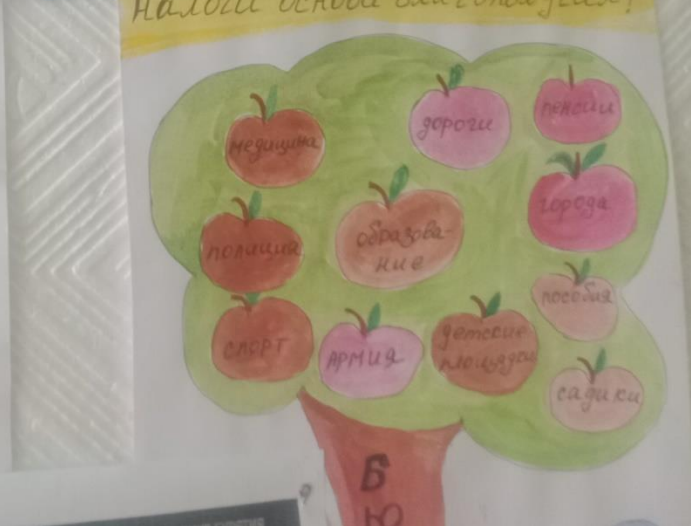 налоги основа благополучия!
медицина
дороги
пенсии
города
полиция
образова-
ние
пособия
спорт
АРМИЯ
детские
площадки
садики
Б
Ю